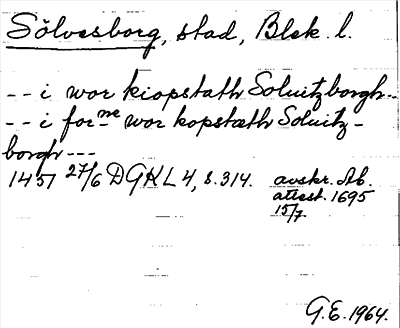 Sölvesborg, stad, Blek. l.
-- i wor kiopstath Soluitzborgh--
-- i forne wor kopstæth Soluitz-
borgh ---
1451 27/6 DGKL 4, s. 314. avskr. Ab.
attest. 1695
15/7.
G.E. 1964.